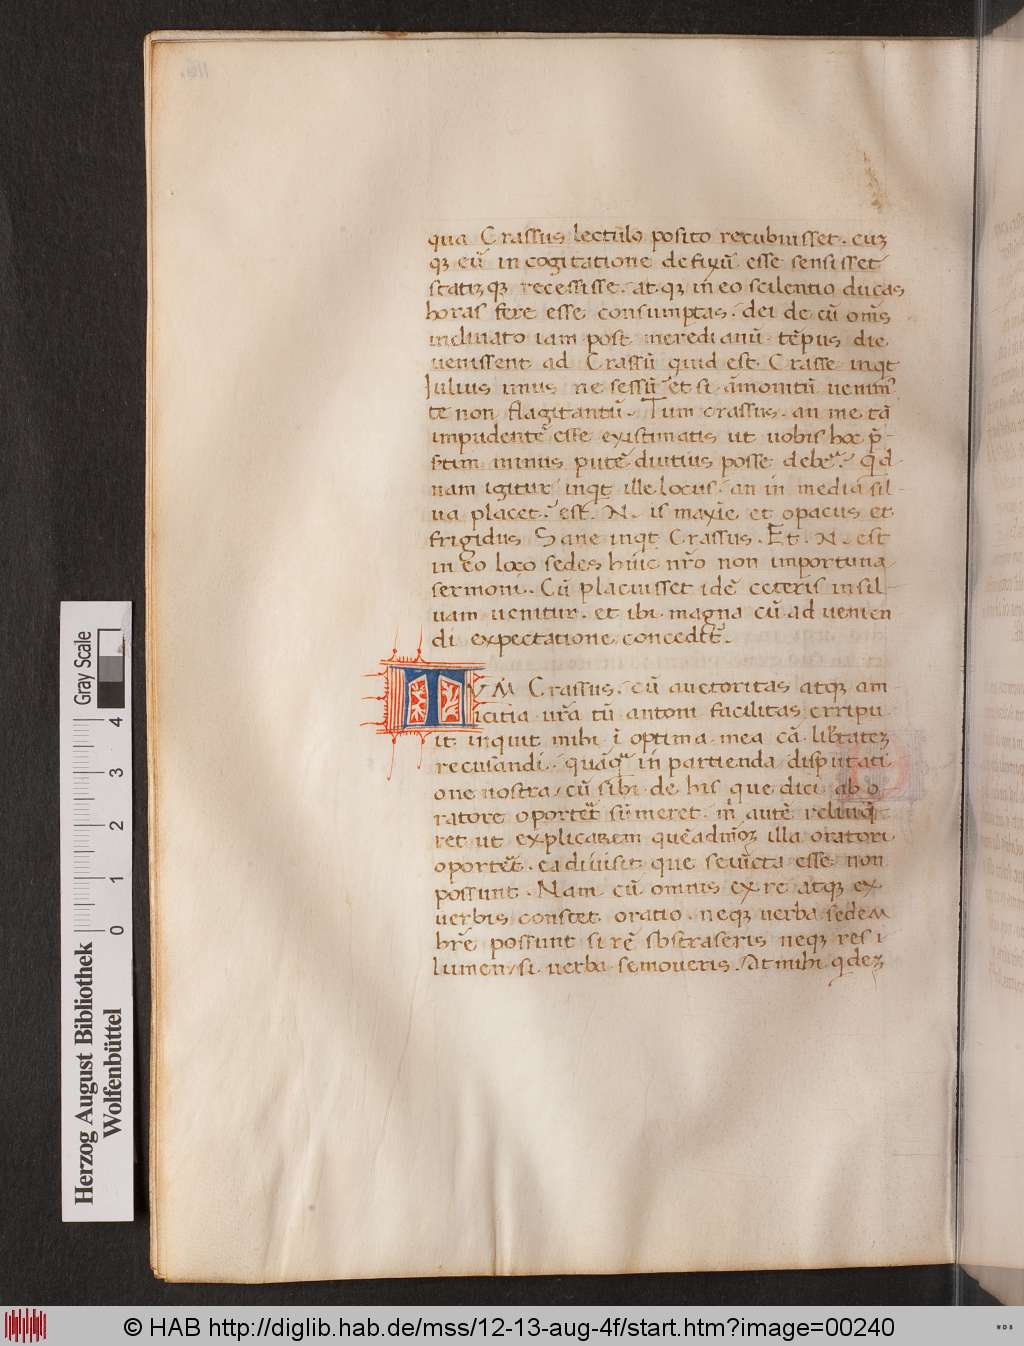 qua Crassus lectulo posito recubuisset. cūq
qȝ eū in cogitatione defixū esse sensisset
statiȝqȝ recessisse. atqȝ in eo scilentio ducas
horas fere esse consumptas. dei de cū om̄s
inclinato iam post meredianū tēpus die
uenissent ad Crassū quid est Crasse inqt
Iulius imus ne sessū et si āmonitū uenim᷒
te non flagitantū. Tum crassus. an me tā
impudentē esse existimatis ut uobis hoc p̄-
sertim minus putē diutius posse debere.
nam igitur inqt ille locus. an in media sil-
ua placet. est. N. is maxīe et opacus et
frigidus Sane inqt Crassus. Et. N. est
in eo loco sedes huic nr̄o non importuna
sermoni. Cū placuisset idē ceteris in sil-
uam uenitur. et ibi magna cū ad uenien
di expectatione concedit̄.
TVM Crassus. cū auctoritas atqȝ am
icitia ur̄a tū antoni facilitas erripu
it inquit mihi ī optima mea cā. lib̄tateȝ
recusandi. quāq̄ in partienda disputati
one nostra cū sibi de his que dici ab o
ratore oportet̄ sumeret. m̄ autē relinq̄
ret ut explicarem quēadmōȝ illa oratori
oportet̄. ea diuisit que seiūcta esse non
possunt. Nam cū omnis ex re atqȝ ex
uerbis constet oratio. neqȝ uerba sedeM
br̄e possunt si rē sbstraseris neqȝ res i
lumen si uerba semoueris. At mihi qdeȝ
Herzog August Bibliothek
Wolfenbüttel
0 1 2 3 4
Gray Scale
© HAB http://diglib.hab.de/mss/12-13-aug-4f/start.htm?image=00240